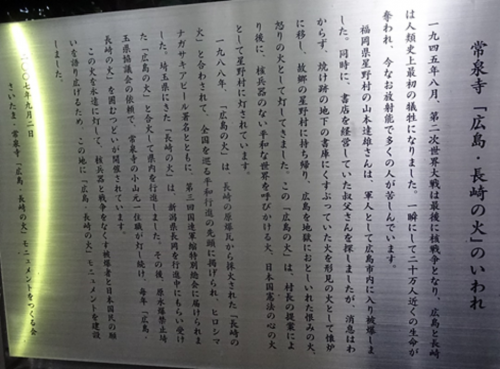 常泉寺「広島・長崎の火」のいわれ
一九四五年八月、第二次世界大戦は最後に核戦争となり、広島と長崎
は人類史上最初の犠牲になりました。一瞬にして二十万人近くの生命が
奪われ、今なお放射能で多くの人が苦しんでいます。
福岡県星野村の山本達雄さんは、軍人として広島市内に入り被爆しま
した。同時に、書店を経営していた叔父さんを探しましたが、消息はわ
からず、焼け跡の地下の書庫にくすぶっていた火を形見の火として懐炉
に移し、故郷の星野村に持ち帰り、広島を地獄におとしいれた恨みの火、
怒りの火として灯してきました。この「広島の火」は、村長の提案によ
り後に、核兵器のない平和な世界を呼びかける火、日本国憲法の心の火
として星野村に灯されています。
一九八八年、「広島の火」は、長崎の原爆瓦から採火された「長崎の
火」と合わされて、全国を巡る平和行進の先頭に掲げられ、ヒロシマ
ナガサキアピール署名とともに、第三回国連軍縮特別総会に届けられま
した。埼玉県にきた「長崎の火」は、新潟県長岡を行進中にもらい受け
た「広島の火」と合火して県内を行進しました。その後、原水爆禁止埼
玉県協議会の依頼で、常泉寺の小山元一住職が灯し続け、毎年「広島・
長崎の火」を囲むつどいが開催されています。
この火を永遠に灯して、核兵器と戦争をなくす被爆者と日本国民の願
いを語り広げるため、この地に「広島・長崎の火」モニュメントを建設
しました。
二〇〇七年九月二日
さいたま・常泉寺「広島・長崎の火」モニュメントをつくる会